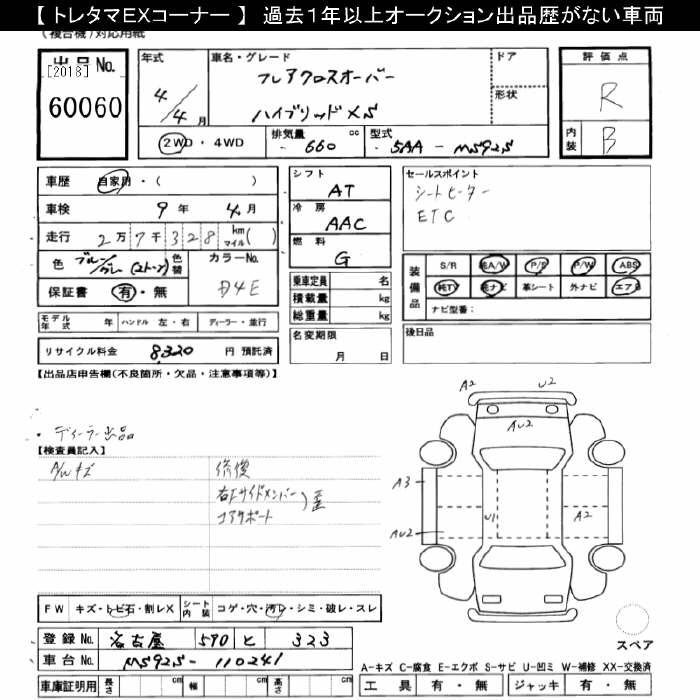 【トレタマEXコーナー】 過去1年以上オークション出品歴がない車両
(複合機)対応用紙
出品No.
[2018]
60060
年式
4/4月
車名・グレード
フレアクロスオーバー
ハイブリッドXS
ドア
形状
評価点
R
内装 B
2WD・4WD
排気量 660 cc
型式 5AA - MS92S
車歴 自家用・( )
車検 9年 4月
走行 2万7千328 km マイル( )
色 ブルー/グレー(2トーン) 色替
カラーNo. D4E
保証書 有・無
モデル年式 年 ハンドル 左・右 ディーラー・並行
リサイクル料金 8,320 円 預託済
シフト AT
冷房 AAC
燃料 G
乗車定員 名
積載量 kg
総重量 kg
名変期限
月 日
セールスポイント
シートヒーター
ETC
装備品
S/R 純A/W P/S P/W ABS
純TV 純ナビ 革シート 外ナビ エアB
ナビ型番:
後日品
【出品店申告欄(不良箇所・欠品・注意事項等)】
・ディーラー出品
【検査員記入】
A/Wキズ
修復
右Fサイドメンバー
コアサポート
歪
A2 U2
AU2
A3
U1 A2
AU2
FW キズ・トビ石・割レX シート内装 コゲ・穴・汚レ・シミ・破レ・スレ
登録No. 名古屋 590 と 323
車台No. MS92S - 110241
車庫証明用 長さ cm 幅 cm 高さ cm
スペア
A-キズ C-腐食 E-エクボ S-サビ U-凹ミ W-補修 XX-交換済
工具 有・無 ジャッキ 有・無